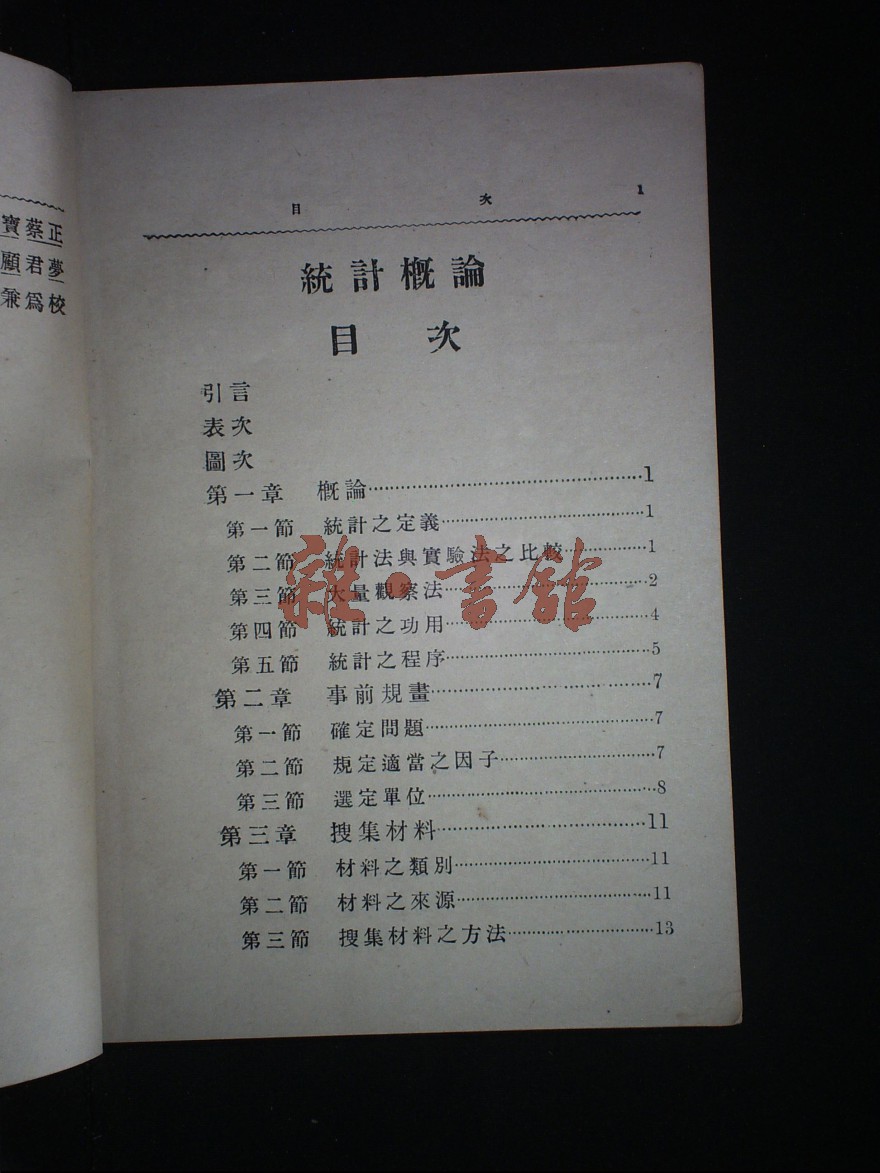 寶蔡正
顧君夢
兼爲校
目 次 1
統計概論
目 次
引言
表次
圖次
第一章 概論……1
第一節 統計之定義……1
第二節 統計法與實驗法之比較……1
第三節 大量觀察法……2
第四節 統計之功用……4
第五節 統計之程序……5
第二章 事前規畫……7
第一節 確定問題……7
第二節 規定適當之因子……7
第三節 選定單位……8
第三章 搜集材料……11
第一節 材料之類別……11
第二節 材料之來源……11
第三節 搜集材料之方法……13
雜·書舘